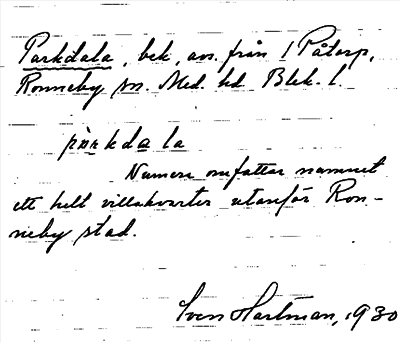 Parkdala, bek, avs. från 1 Påtorp,
Ronneby sn. Med. hd Blek. l.
pàrkdala
Numera omfattar namnet
ett helt villakvarter utanför Ron-
neby stad.
Sven Hartman, 1930